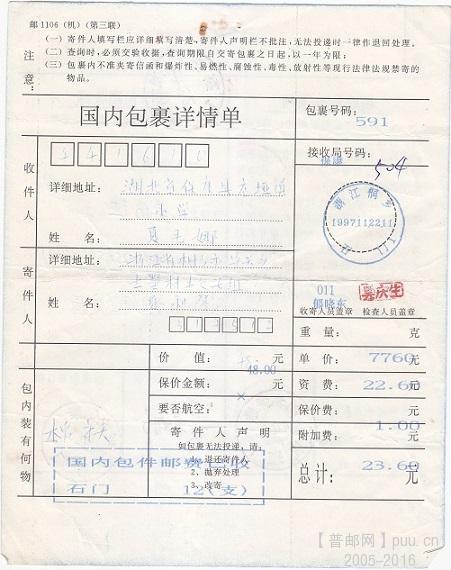 邮1106(机)(第三联)
注意:
(一)寄件人填写栏应详细填写清楚,寄件人声明栏不批注,无法投递时一律作退回处理。
(二)查询时,必须交验收据,查询期限自交寄包裹之日起,以一年为限;
(三)包裹内不准夹寄信函和爆炸性、易燃性、腐蚀性、毒性、放射性等现行法律法规禁寄的
物品。
国内包裹详情单
包裹号码:
591
接收局号码:
504
收件人
详细地址:
小学
姓 名:
浙江桐乡
1997112211
石门
寄件人
详细地址:
姓 名:
011
收寄人员盖章 检查人员盖章
重 量: 克
包内装有何物
价 值: 元
48.00
保价金额: 元
要否航空: ×
单 价: 7760 元
资 费: 22.60 元
保价费: 元
附加费: 1.00 元
总计: 23.60 元
寄件人声明
如包裹无法投递,请:
1、退还寄件人
2、抛弃处理
3、改寄
国内包件邮费已收
石门 12(支)
【普邮网】puu.cn
2005-2016